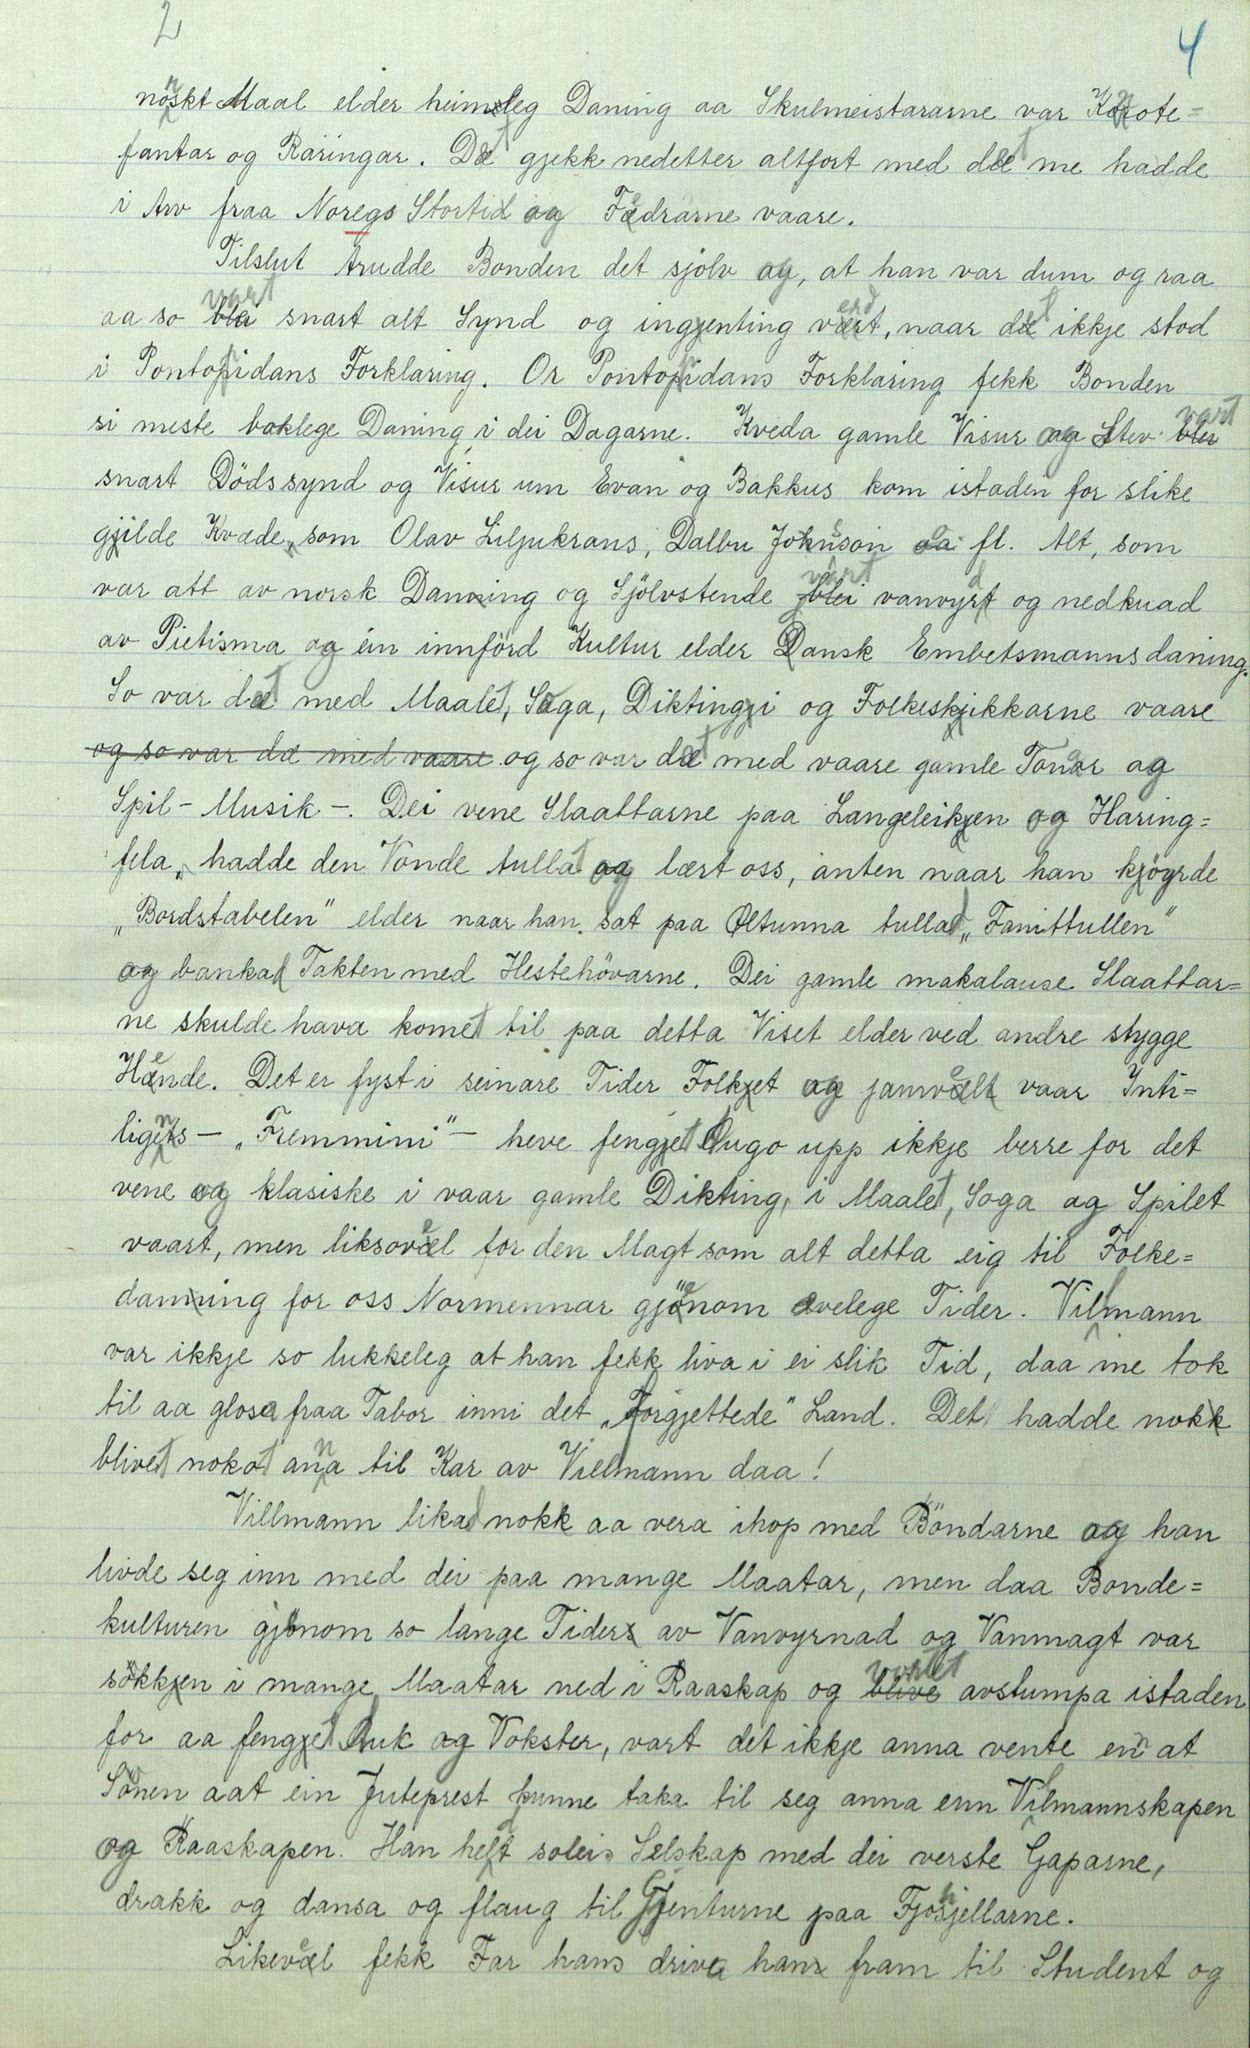 2 4
norskt Maal elder heimleg Daning aa Skulmeistararne var Kote=
fantar og Räringar. Det gjekk nedetter altfort med det me hadde
i Arv fraa Noregs Stortid og Fedrarne vaare.
Tilslut trudde Bonden det sjölv og, at han var dum og raa
aa so vart snart alt Synd og ingenting verd, naar det ikkje stod
i Pontoppidans Forklaring. Or Pontoppidans Forklaring fekk Bonden
si meste boklege Daning i dei Dagarne. Kveda gamle Visur og Stev vart
snart Dödssynd og Visur um Evan og Bakkus kom istaden for slike
gilde Kvæde, som Olav Liljukrans, Dalbu Jonson o fl. Alt, som
var att av norsk Daning og Sjölvstende vart vanvyrd og nedkuad
av Pietisma og ein innförd Kultur elder Dansk Embetsmannsdaning.
So var det med Maalet, Soga, Diktingi og Folkeskikkarne vaare
og so var dæ med vaare og so var det med vaare gamle Tonar og
Spil - Musik -. Dei vene Slaattarne paa Langeleiken og Haring=
fela, hadde den Vonde tullat og lært oss, anten naar han köyrde
„Bordstabelen" elder naar han sat paa Øltunna tullad „Fanittullen"
og bankad Takten med Hestehövarne. Dei gamle makalause Slaattar=
ne skulde hava komet til paa detta Viset elder ved andre stygge
Hende. Det er fyst i seinare Tider Folket og jamvel vaar Inti=
ligens - „Fremmini" - heve fenget Augo upp ikkje berre for det
vene og klasiske i vaar gamle Dikting, i Maalet, Soga og Spilet
vaart, men liksovel for den Magt som alt detta eig til Folke=
daning for oss Normennar gjenom ævelege Tider. Villmann
var ikkje so lukkeleg at han fekk liva i ei slik Tid, daa me tok
til aa glosa fraa Tabor inni det „Forgjettede" Land. Det hadde nok
blivet nokot anna til Kar av Villmann daa!
Villmann likad nokk aa vera ihop med Böndarne og han
livde seg inn med dei paa mange Maatar, men daa Bonde=
kulturen gjönom so lange Tider av Vanvyrnad og Vanmagt var
sökken i mange Maatar ned i Raaskap og vortet avstumpa istaden
for aa fenget Auk og Vokster, vart det ikkje anna vente en at
Sonen aat ein Juteprest kunne taka til seg anna enn Villmannskapen
og Raaskapen. Han held soleis Selskap med dei verste Gaparne,
drakk og dansa og flaug til Gjenturne paa Fjoshjellarne.
Likevel fekk Far hans driva han fram til Student og